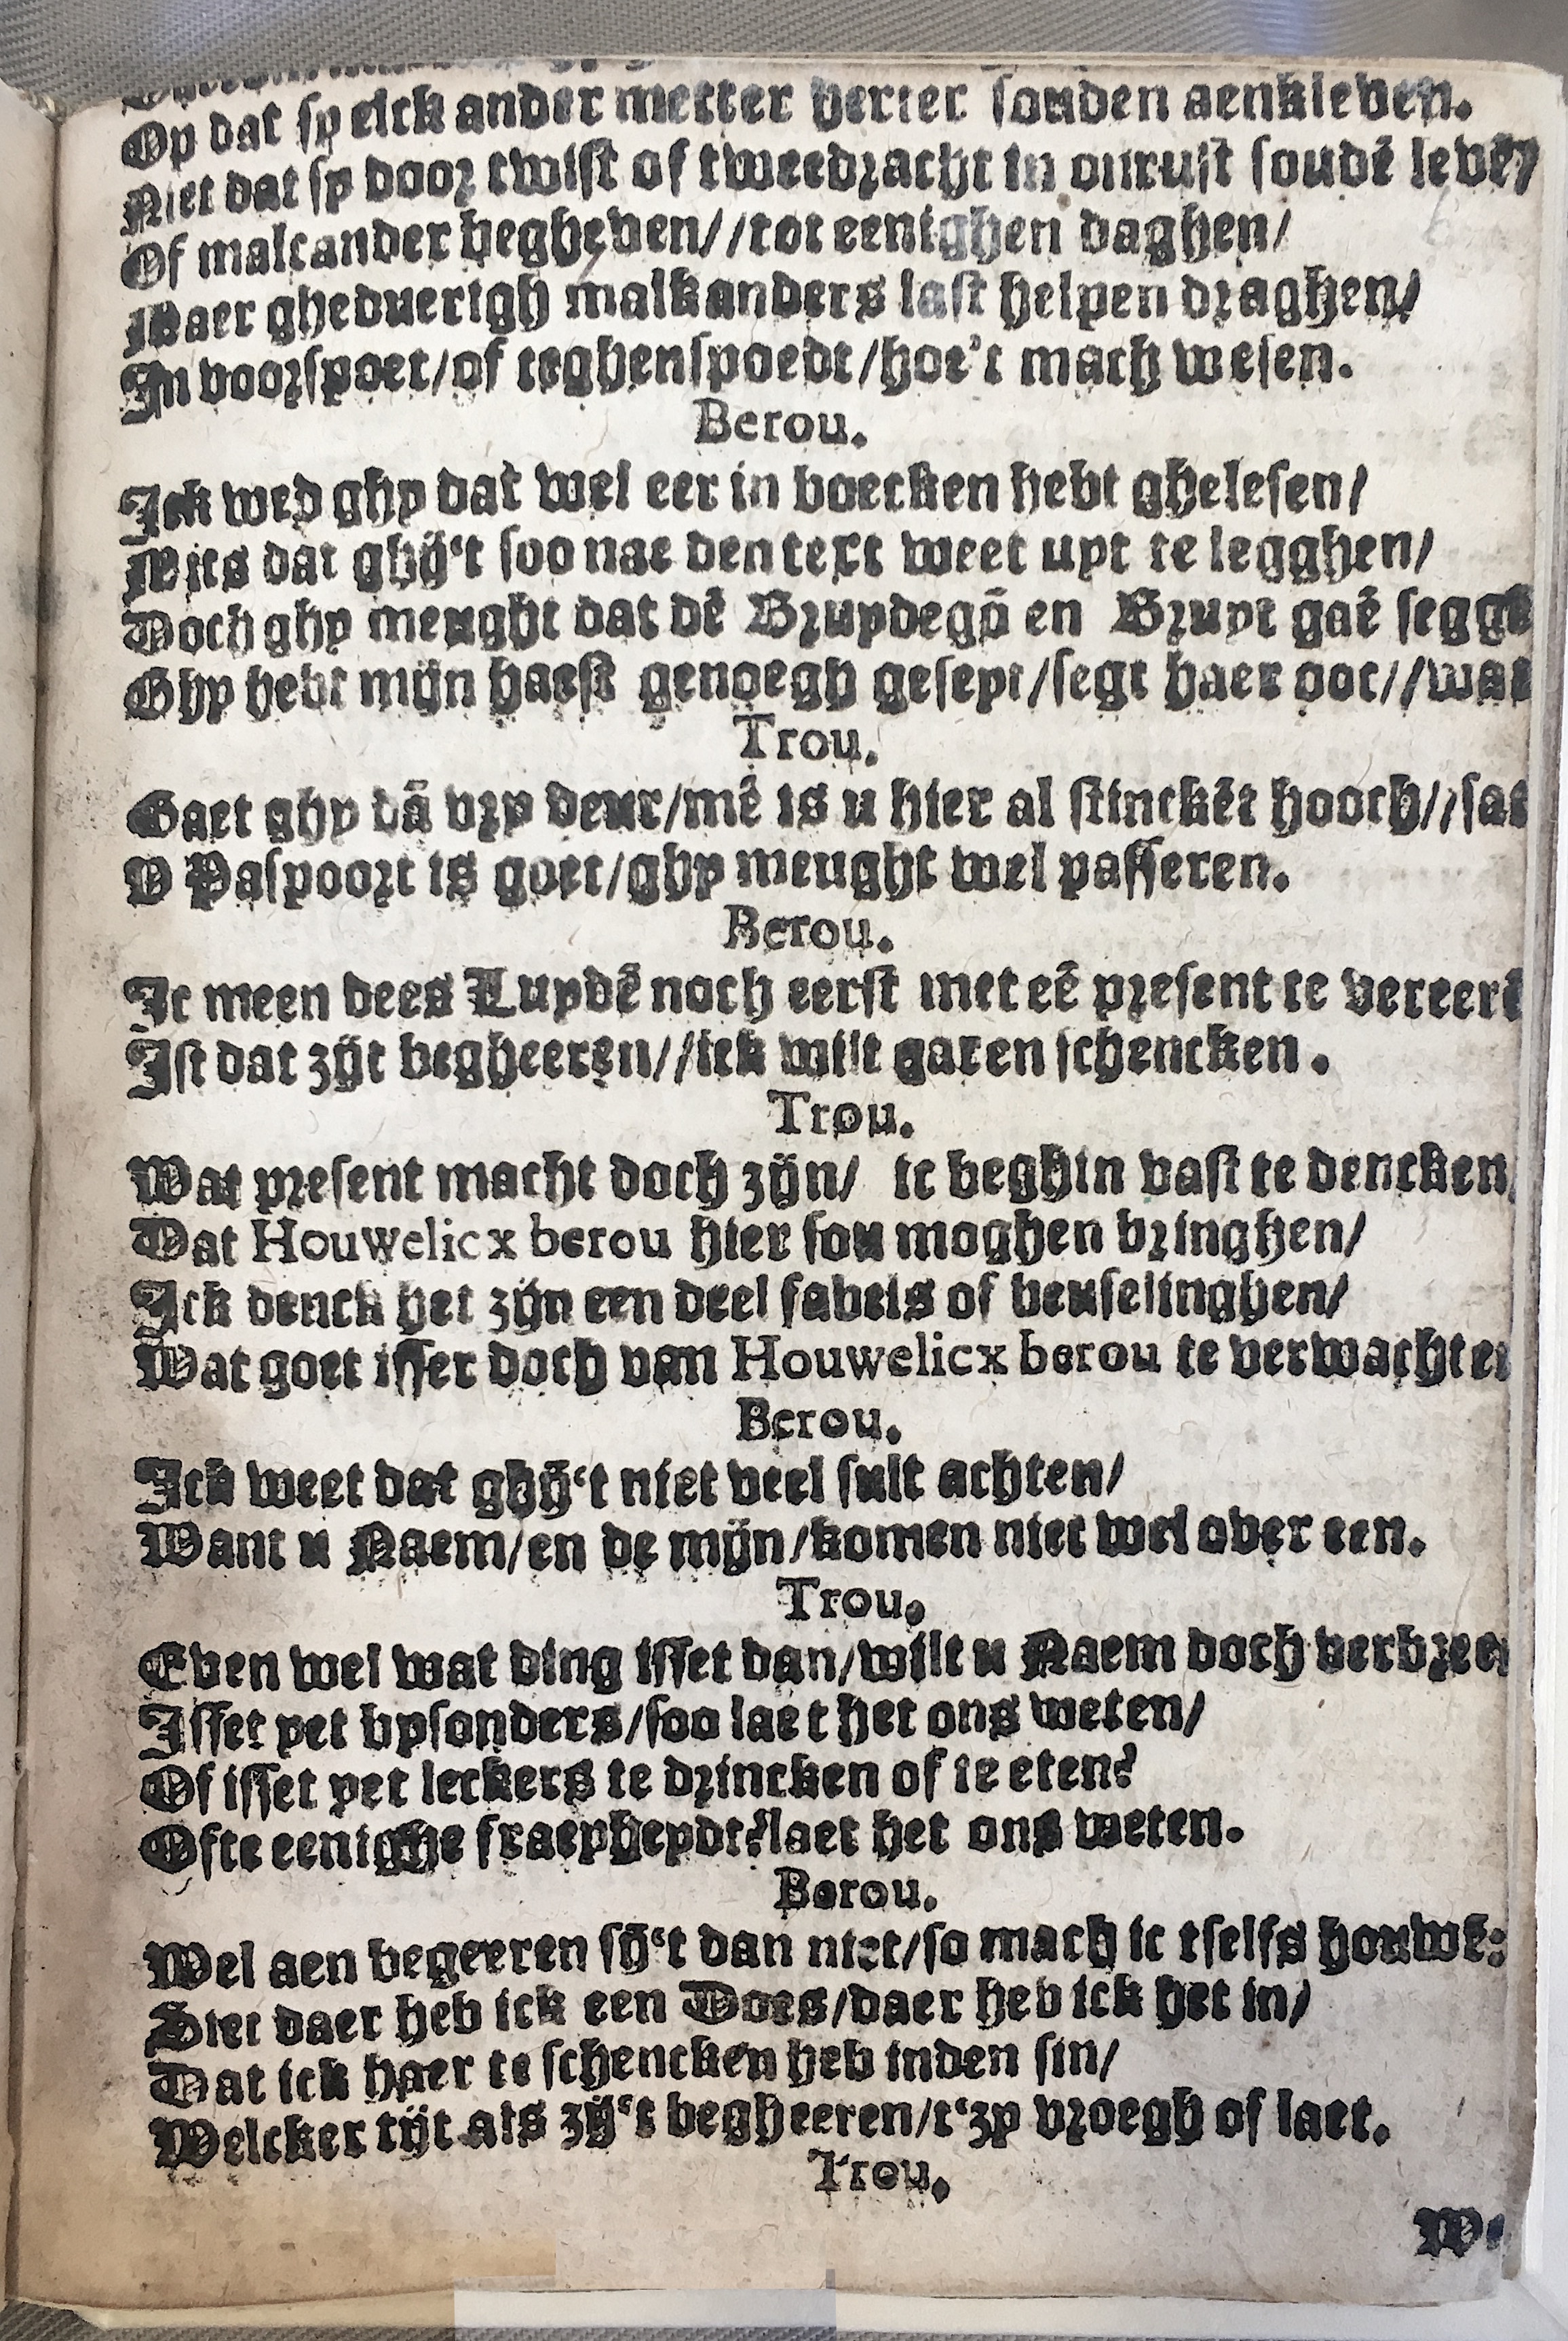 Op dat sy elck ander metter herter souden aenkleven.
Niet dat sy door twist of tweedracht in onrust soudē levē
Of malcander begheven//tot eenighen daghen/
Maer gheduerigh malkanders last helpen draghen/
In voorspoet/of teghenspoedt/hoe't mach wesen.
Berou.
Ick wed ghy dat wel eer in boecken hebt ghelesen/
Mits dat ghy't soo nae den text weet uyt te legghen/
Doch ghy meught dat dē Bruydegō en Bruyt gaē segg
Ghy hebt mijn haest genoegh geseyt/segt haer oot//wat
Trou.
Gaet ghy dā vry deur/mē is u hier al stinckēt hooch//sat
D Paspoort is goet/ghy meught wel passeren.
Berou.
Ic meen dees Luydē noch eerst met eē present te vereerē
Ist dat zijt begheeren//ick wilt garen schencken.
Trou.
Wat present macht doch zijn/ ic beghin vast te dencken
Dat Houwelicx berou hier sou moghen bringhen/
Ick denck het zijn een deel fabels of beuselinghen/
Wat goet isser doch van Houwelicx berou te verwachte
Berou.
Ick weet dat ghy't niet veel sult achten/
Want u Naem/en de mijn/komen niet wel over een.
Trou.
Even wel wat ding isset dan/wilt u Naem doch verbree
Isset yet bysonders/soo laet het ons weten/
Of isset yet leckers te drincken of te eten?
Ofte eenighe fraeyheydt?laet het ons weten.
Berou.
Wel aen begeeren sy't dan niet/so mach ic tselfs houwē:
Siet daer heb ick een Does/daer heb ick het in/
Dat ick haer te schencken heb inden sin/
Welcker tijt als zy't begheeren/t'zy vroegh of laet.
Trou.
W